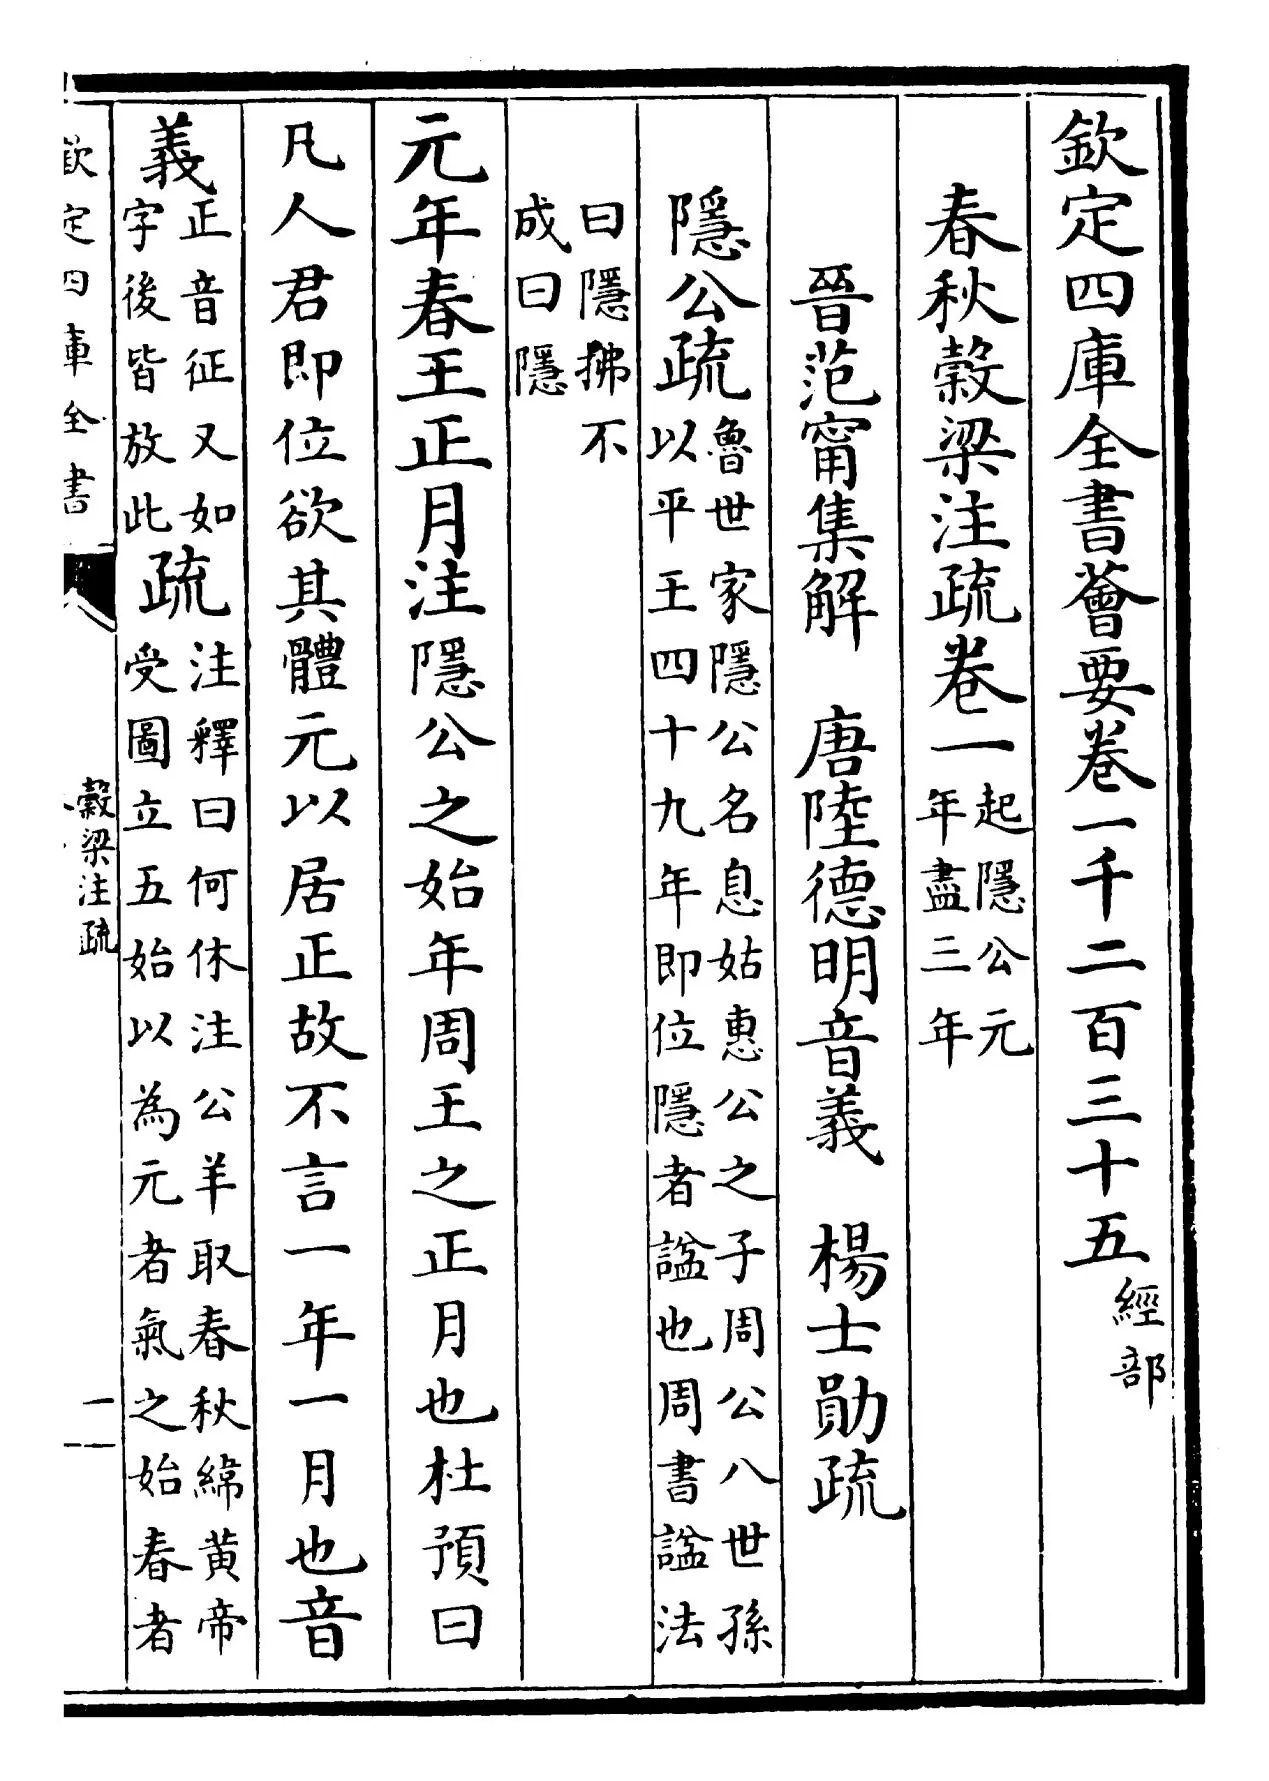 欽定四庫全書薈要卷一千二百三十五經部
春秋穀梁注疏卷一起隱公元年盡三年
晉范甯集解　唐陸德明音義　楊士勛疏
隱公疏魯世家隱公名息姑惠公之子周公八世孫以平王四十九年即位隱者諡也周書諡法
曰隱拂不成曰隱
元年春王正月注隱公之始年周王之正月也杜預曰
凡人君即位欲其體元以居正故不言一年一月也音
義正音征又如字後皆放此疏注釋曰何休注公羊取春秋緯黄帝受圖立五始以為元者氣之始春者
欽定四庫全書
穀梁注疏
一